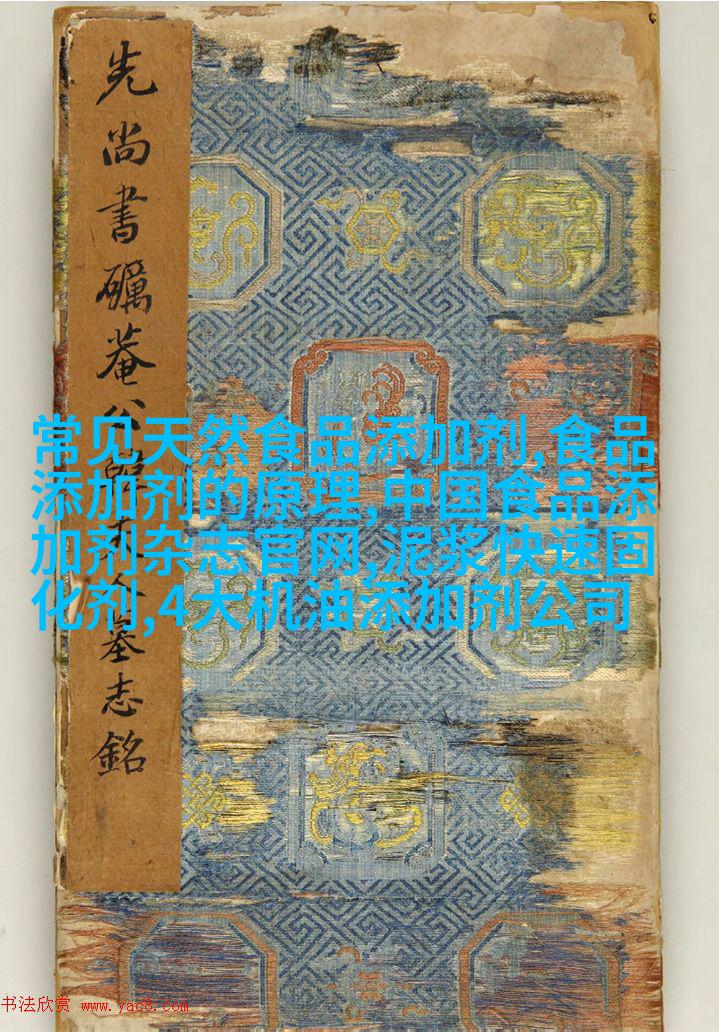 先尚書礪菴公
墓志銘
常见天然食品添加剂,食品
添加剂的原理,中国食品添
加剂杂志官网,泥浆快速固
化剂,4大机油添加剂公司
书法欣赏 www.yac8.com